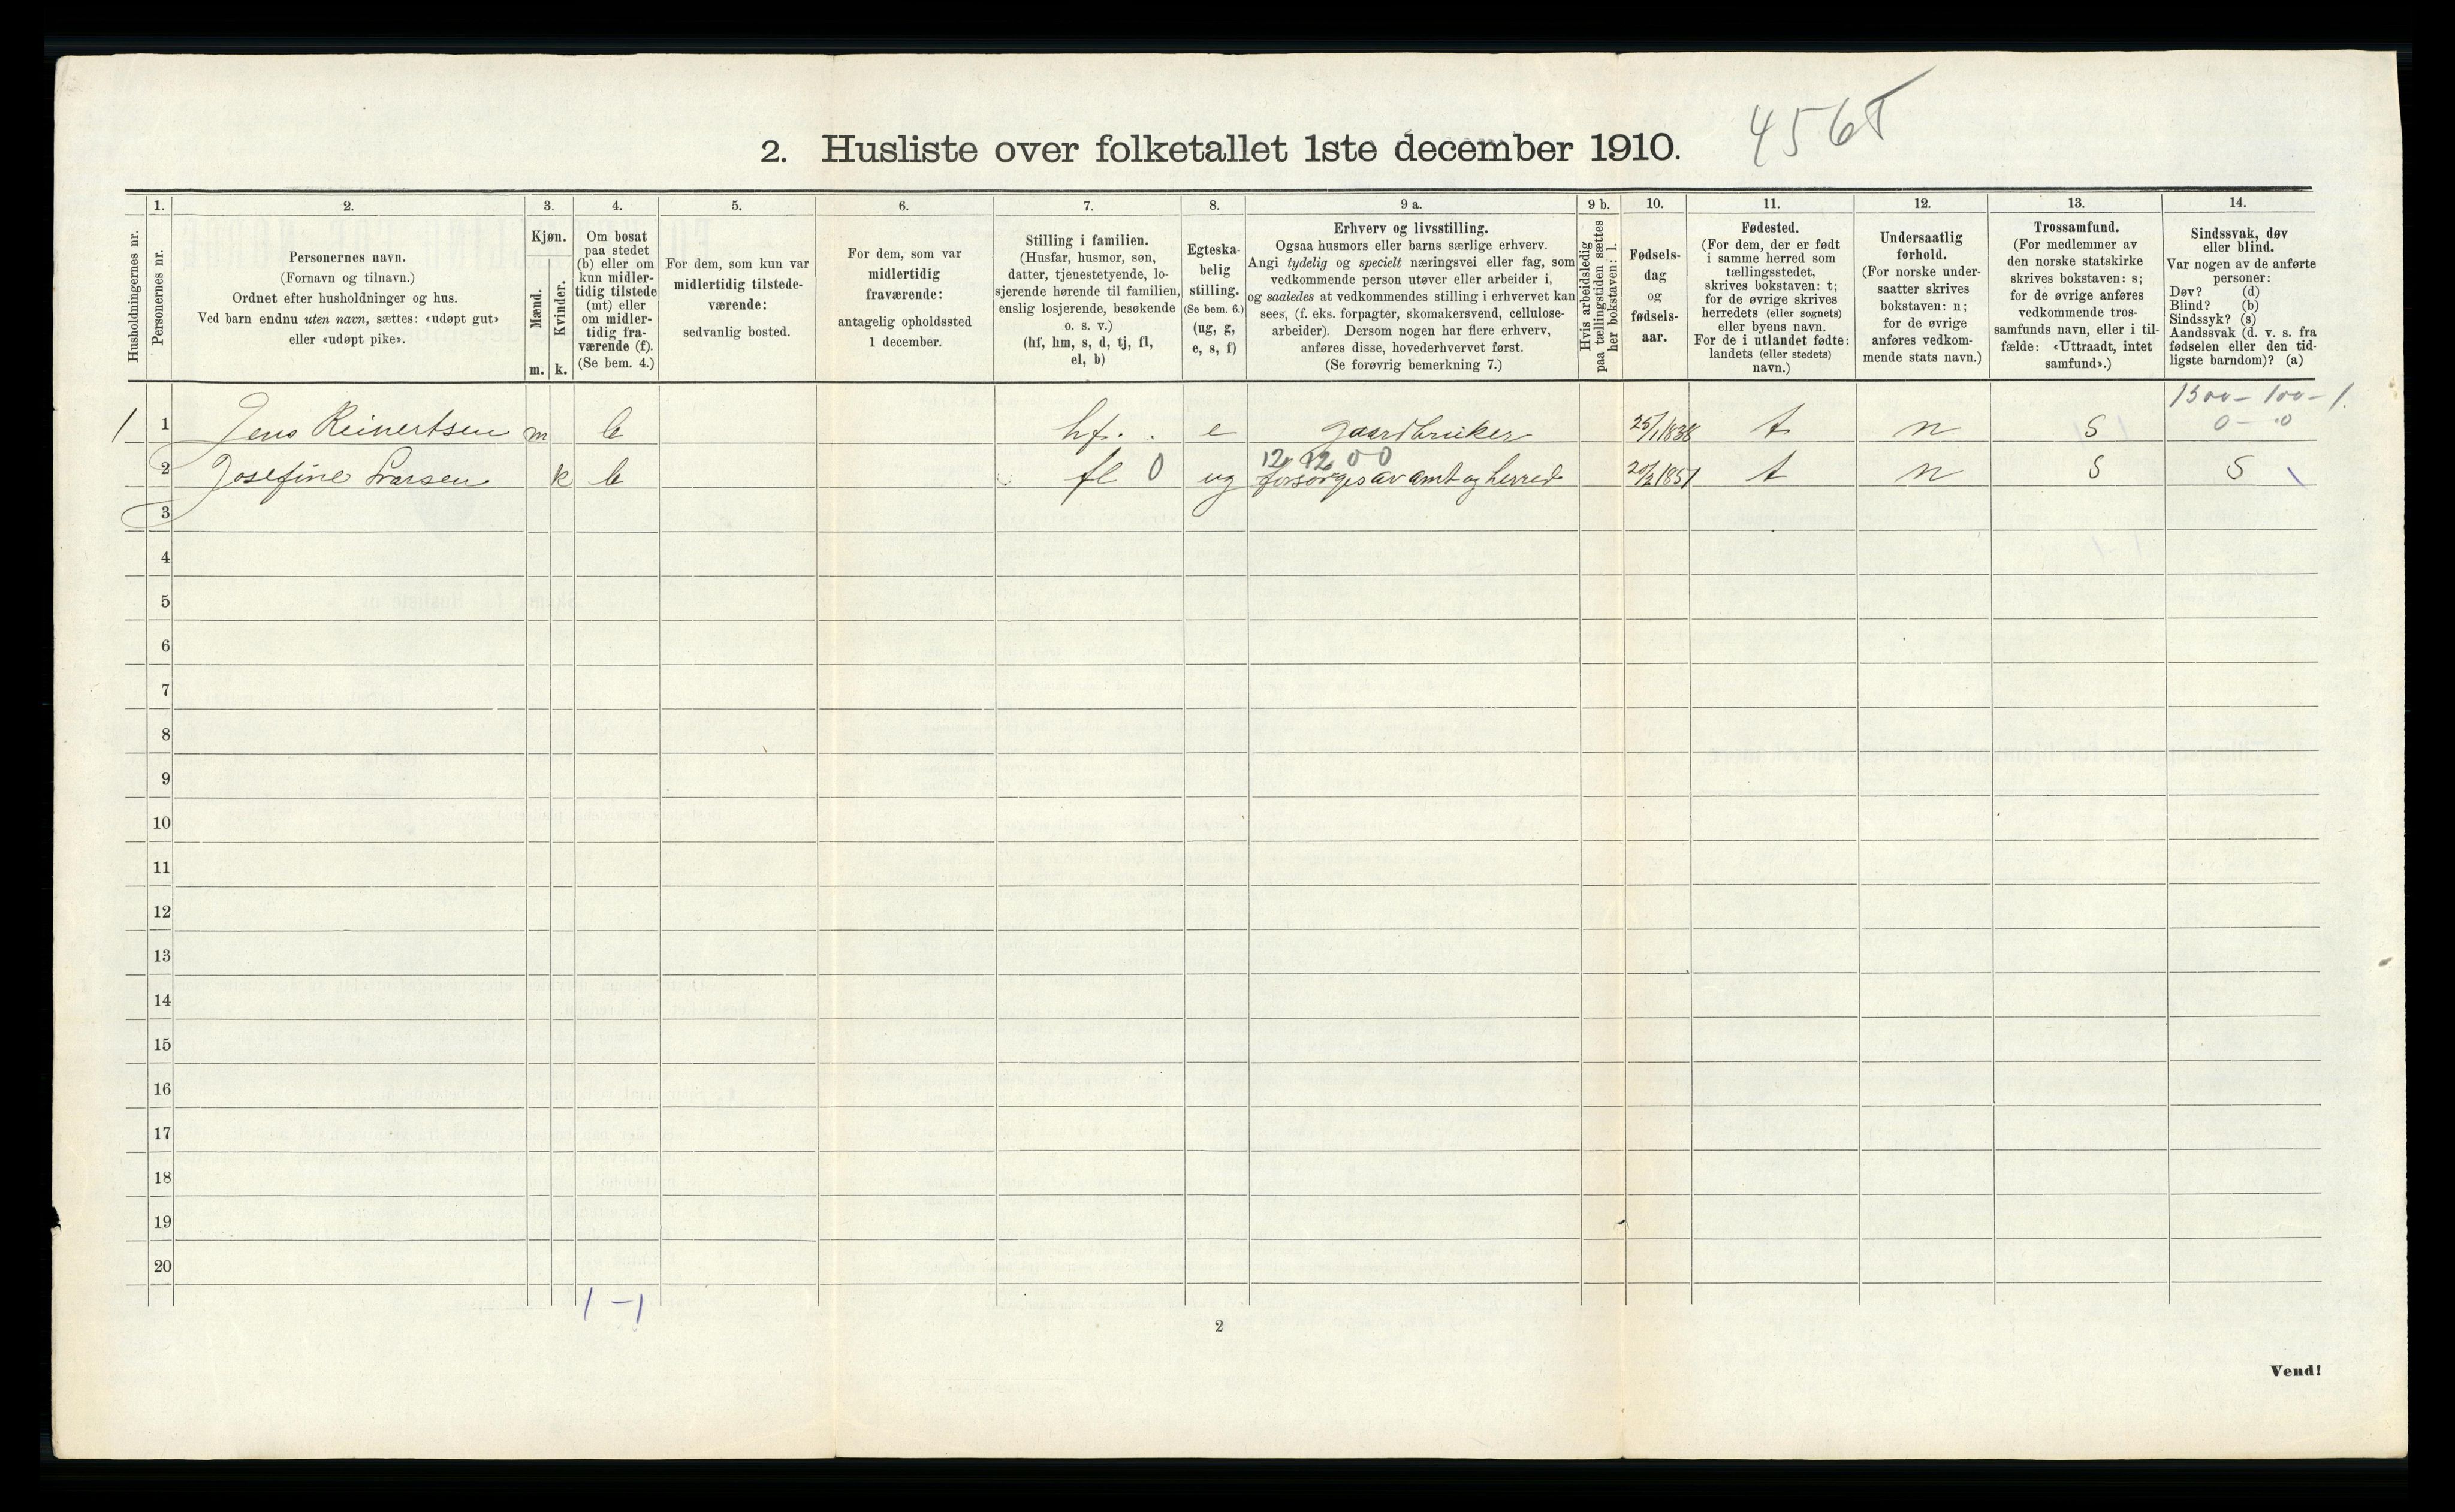 4565
2. Husliste over folketallet 1ste december 1910.
Husholdningernes nr.
1.
Personernes nr.
2.
Personernes navn.
(Fornavn og tilnavn.)
Ordnet efter husholdninger og hus.
Ved barn endnu uten navn, sættes: «udøpt gut»
eller «udøpt pike».
3.
Kjøn.
Mænd.
Kvinder.
m. k.
4.
Om bosat
paa stedet
(b) eller om
kun midler-
tidig tilstede
(mt) eller
om midler-
tidig fra-
værende (f).
(Se bem. 4.)
5.
For dem, som kun var
midlertidig tilstede-
værende:
sedvanlig bosted.
6.
For dem, som var
midlertidig
fraværende:
antagelig opholdssted
1 december.
7.
Stilling i familien.
(Husfar, husmor, søn,
datter, tjenestetyende, lo-
sjerende hørende til familien,
enslig losjerende, besøkende
o. s. v.)
(hf, hm, s, d, tj, fl,
el, b)
8.
Egteska-
belig
stilling.
(Se bem. 6.)
(ug, g,
e, s, f)
9 a.
Erhverv og livsstilling.
Ogsaa husmors eller barns særlige erhverv.
Angi tydelig og specielt næringsvei eller fag, som
vedkommende person utøver eller arbeider i,
og saaledes at vedkommendes stilling i erhvervet kan
sees, (f. eks. forpagter, skomakersvend, cellulose-
arbeider). Dersom nogen har flere erhverv,
anføres disse, hovederhvervet først.
(Se forøvrig bemerkning 7.)
9 b.
Hvis arbeidsledig
paa tællingstiden sættes
her bokstaven: l.
10.
Fødsels-
dag
og
fødsels-
aar.
11.
Fødested.
(For dem, der er født
i samme herred som
tællingsstedet,
skrives bokstaven: t;
for de øvrige skrives
herredets (eller sognets)
eller byens navn.
For de i utlandet fødte:
landets (eller stedets)
navn.)
12.
Undersaatlig
forhold.
(For norske under-
saatter skrives
bokstaven: n;
for de øvrige
anføres vedkom-
mende stats navn.)
13.
Trossamfund.
(For medlemmer av
den norske statskirke
skrives bokstaven: s;
for de øvrige anføres
vedkommende tros-
samfunds navn, eller i til-
fælde: «Uttraadt, intet
samfund».)
14.
Sindssvak, døv
eller blind.
Var nogen av de anførte
personer:
Døv? (d)
Blind? (b)
Sindssyk? (s)
Aandssvak (d. v. s. fra
fødselen eller den tid-
ligste barndom)? (a)
1300 - 100 - 1.
0 - 0
1 1 Jens Reinertsen m b hf. e gaardbruker 25/1 1838 t n s
12 12 0 0
2 Josefine Larsen k b fl 0 ug forsørges av amt og herred 20/2 1851 t n s s
3
4
5
6
7
8
9
10
11
12
13
14
15
16
17
18
19
20
1 - 1
2
Vend!